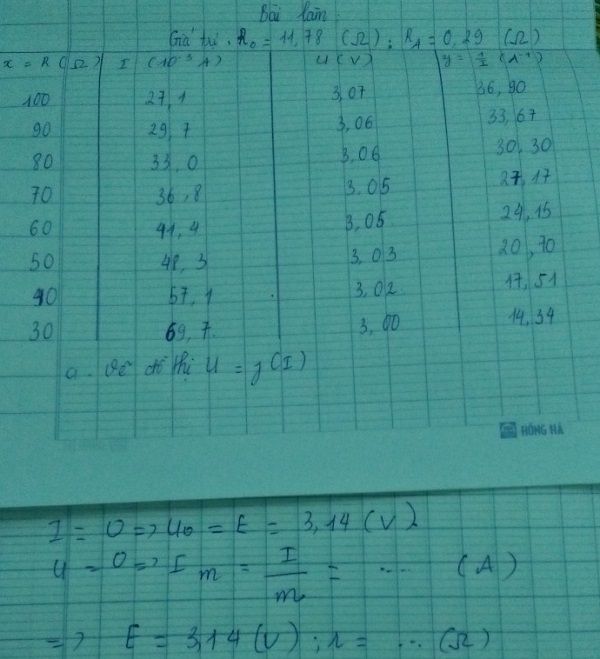 Bài làm
Giá trị. R₀ = 11,78 (Ω) ; R_A = 0,29 (Ω)
x = R (Ω) I (10⁻³ A) U (V) y = 1/I (A⁻¹)
100 27,1 3,07 36,90
90 29,7 3,06 33,67
80 33,0 3,06 30,30
70 36,8 3,05 27,17
60 41,4 3,05 24,15
50 48,3 3,03 20,70
40 57,1 3,02 17,51
30 69,7 3,00 14,34
a. Vẽ đồ thị U = f(I)
HỒNG HÀ
I = 0 => U₀ = E = 3,14 (V)
U = 0 => I_m = I/m = ... (A)
=> E = 3,14 (V) ; r = ... (Ω)